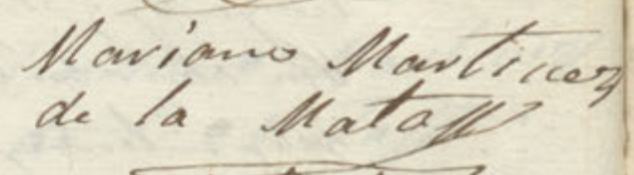 Mariano Martinez
de la Mata